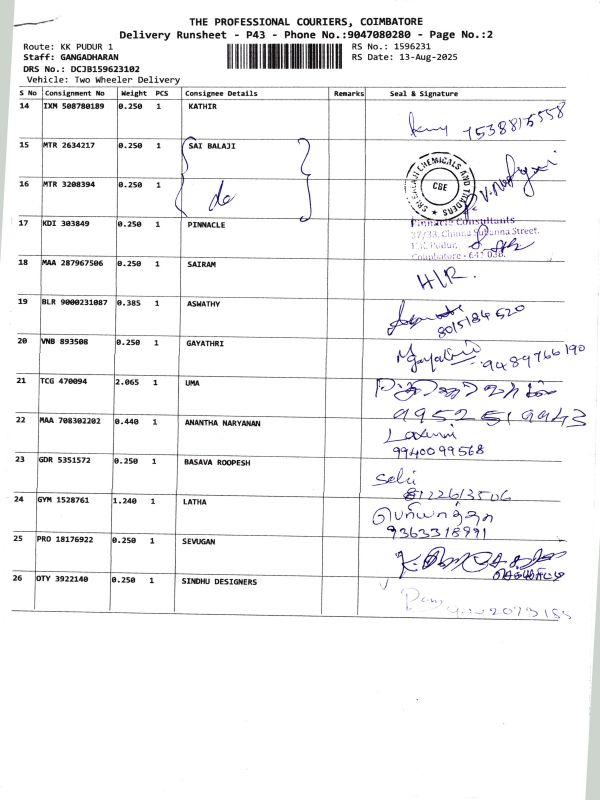 THE PROFESSIONAL COURIERS, COIMBATORE
Delivery Runsheet - P43 - Phone No.:9047080280 - Page No.:2
Route: KK PUDUR 1 RS No.: 1596231
Staff: GANGADHARAN RS Date: 13-Aug-2025
DRS No.: DCJB159623102
Vehicle: Two Wheeler Delivery
S No Consignment No Weight PCS Consignee Details Remarks Seal & Signature
14 IXM 508780189 0.250 1 KATHIR
15 MTR 2634217 0.250 1 SAI BALAJI
CHEMICALS AND TRADERS
CBE
16 MTR 3208394 0.250 1 do
17 KDI 303849 0.250 1 PINNACLE
Pinnacle Consultants
37/33, Chinna Subanna Street,
K.K. Pudur,
Coimbatore - 641 038.
18 MAA 287967506 0.250 1 SAIRAM H/R.
19 BLR 9000231087 0.385 1 ASWATHY
8015184520
20 VNB 893508 0.250 1 GAYATHRI Mgayathri
9489766190
21 TCG 470094 2.065 1 UMA
9952519943
22 MAA 708302202 0.440 1 ANANTHA NARYANAN Laxmi
9940099568
23 GDR 5351572 0.250 1 BASAVA ROOPESH Selvi
8122613506
24 GYM 1528761 1.240 1 LATHA
9363318991
25 PRO 18176922 0.250 1 SEVUGAN
26 OTY 3922140 0.250 1 SINDHU DESIGNERS